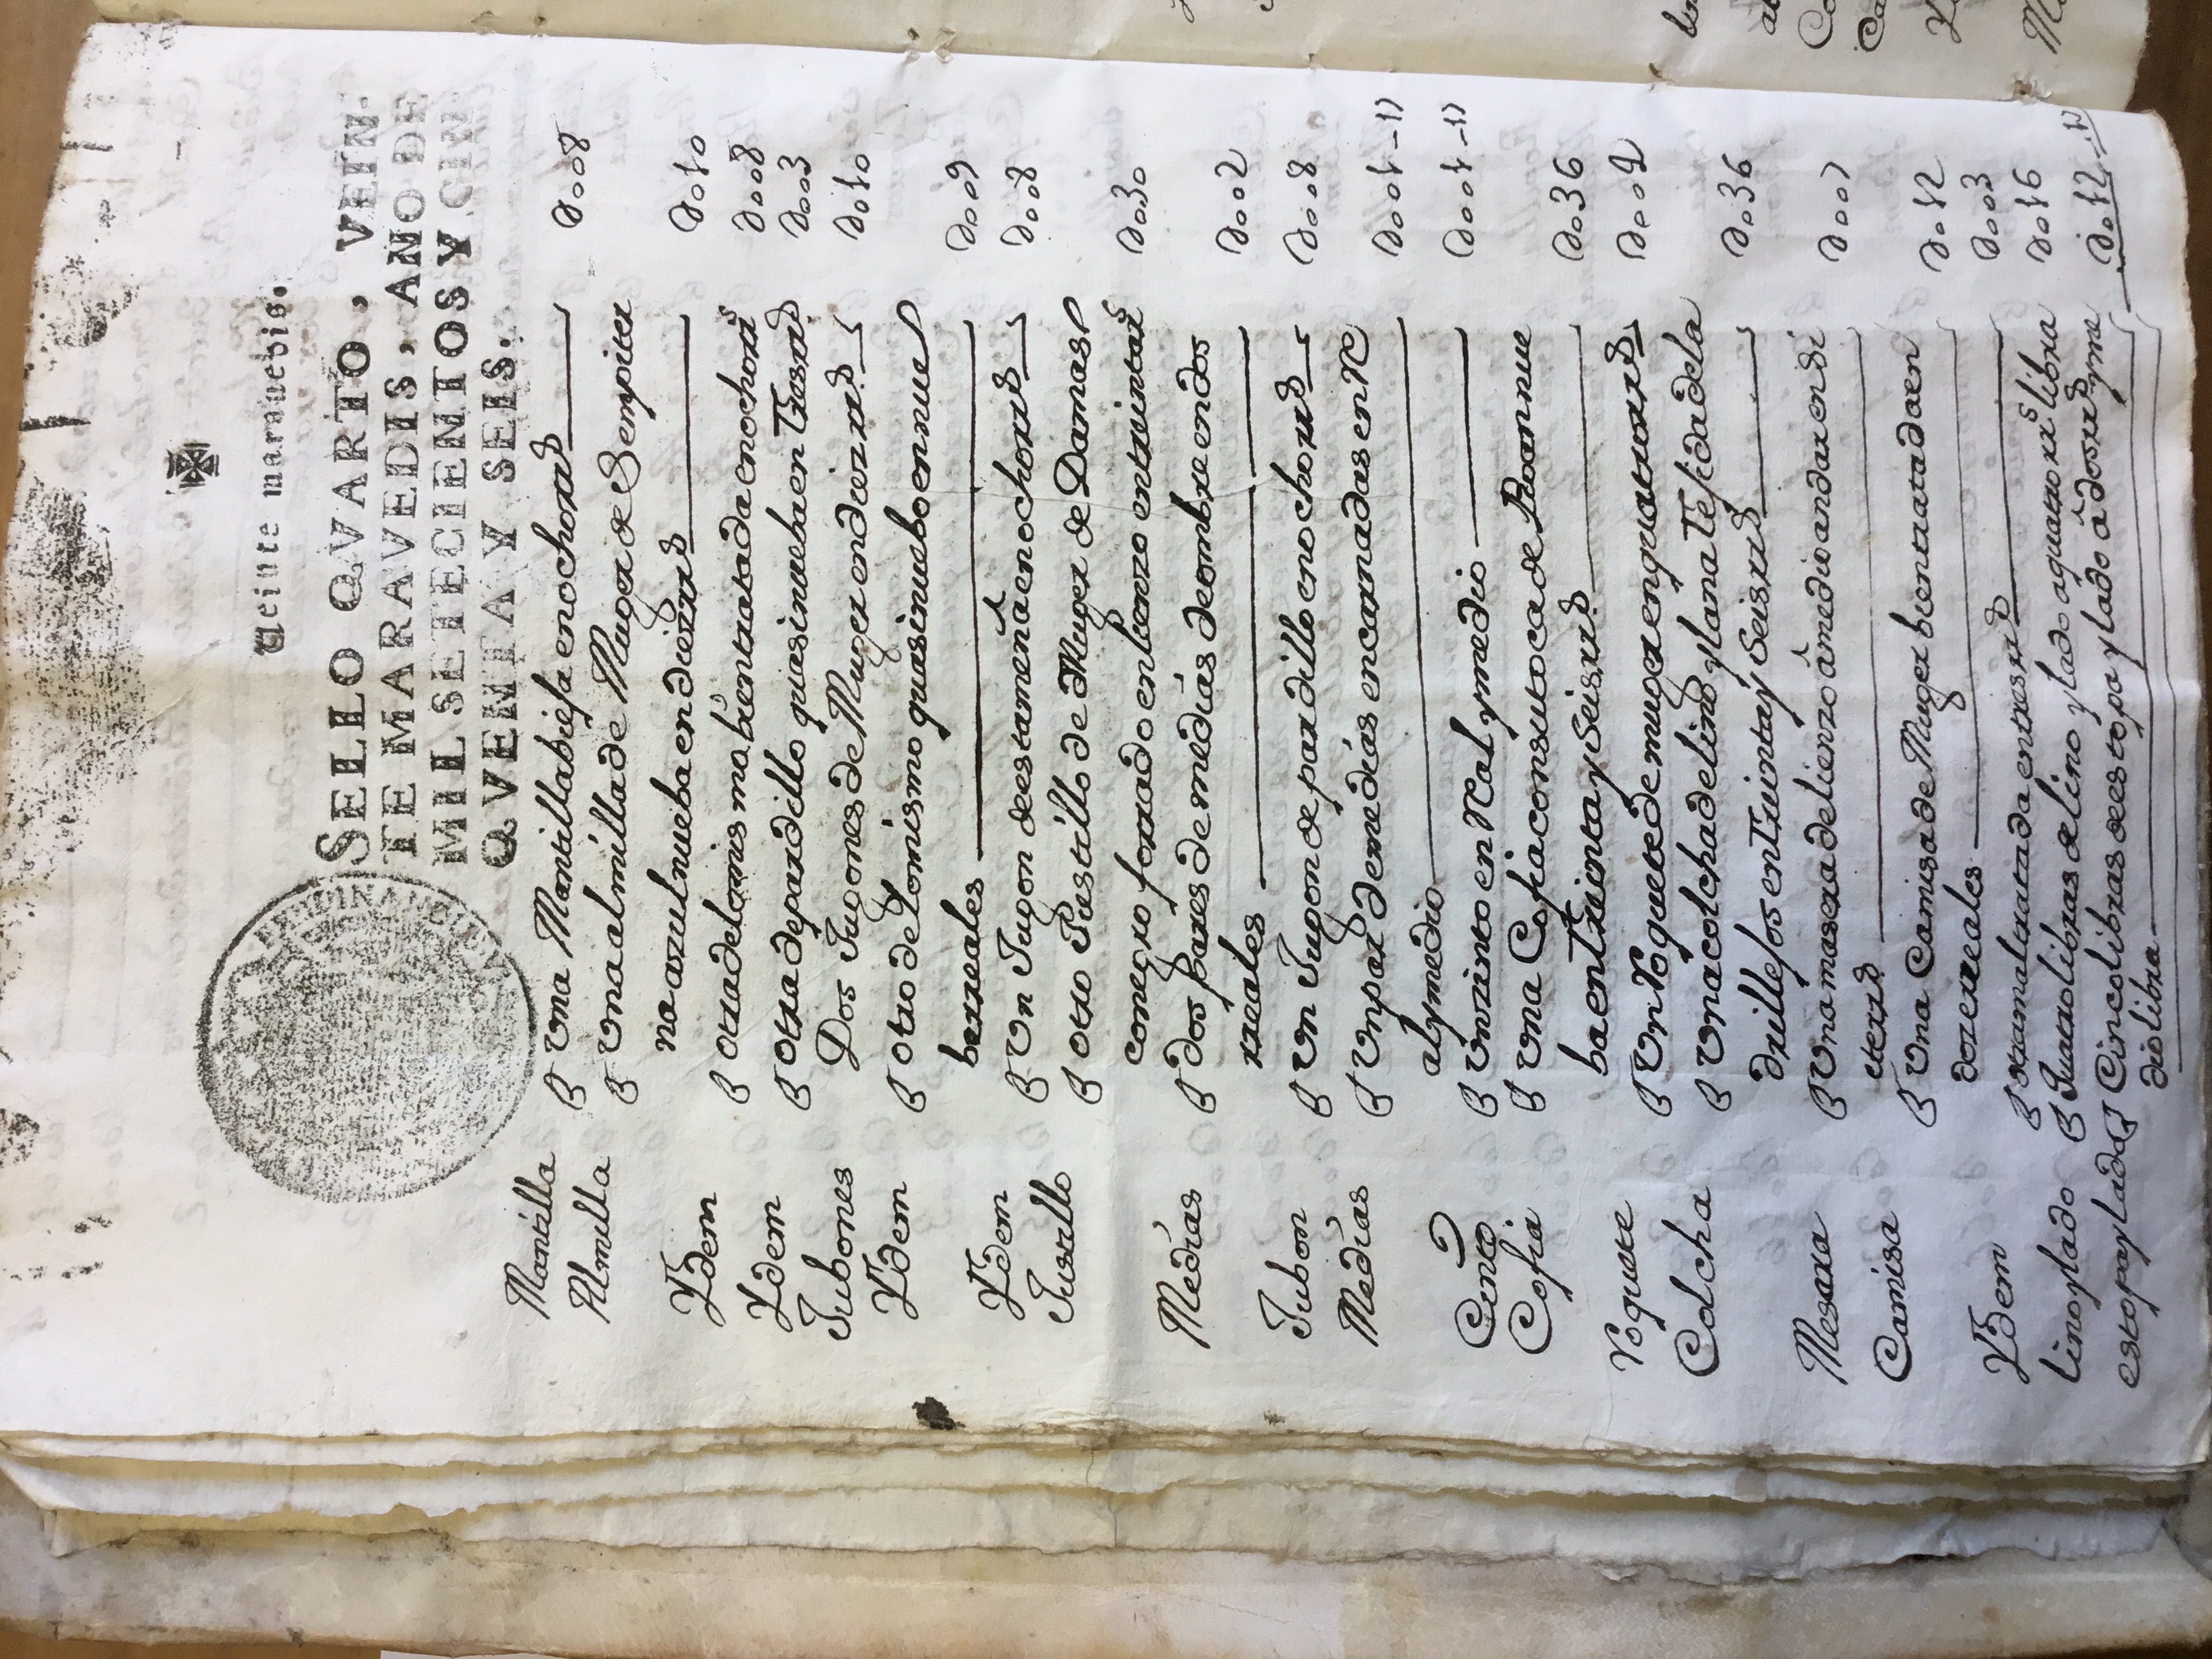 Veinte marauedis.
SELLO QVARTO, VEIN-
TE MARAVEDIS, AÑO DE
MIL SETECIENTOS Y CIN-
QVENTA Y SEIS.
Mantilla Vna Mantilla biesa en ocho rrs d..08
Almilla Vna almilla de Muger de Sempiter
na azul nueba en diez rrs d.010
Ydem otra de lo mismo bien tratada en ocho rrs d..08
Ydem otra de pardillo quasi nueba en tres rrs d..03
Jubones Dos Jugones de Muger en diez rrs d.010
Ydem otro de lo mismo quasi nuebo en nue
be rreales d..09
Ydem Vn Jugon de estameña en ocho rrs d..08
Justillo otro Justillo de Muger de Damas
co negro forrado en lienzo en treinta rrs d.030
Medias dos pares de medias de ombre en dos
rreales d..02
Jubon Vn Jugon de pardillo en ocho rrs d..08
Medias Vn par de medias encarnadas en Re
al y medio d..01-17
Cinto Vn zinto en Real y medio d..01-17
Cofia Vna Cofia con su toca de Roan nue
ba en treinta y seis rrs d.036
Roquete Vn Roquete de muger en quatro rrs
Colcha Vna colcha de lino y lana tesida de la
drillesos en treinta y seis rrs d.036
Mesara Vna masera de lienzo â medio andar en si
ete rrs d..07
Camisa Vna Camisa de Muger bien tratada en
doze rreales d.012
Ydem otra maltratada en tres rrs d..03
lino ylado Quatro libras de lino ylado a quatro rrs libra d.016
estopa ylada Cinco libras de estopa ylado â dos rrs y me
dio libra d.012-17